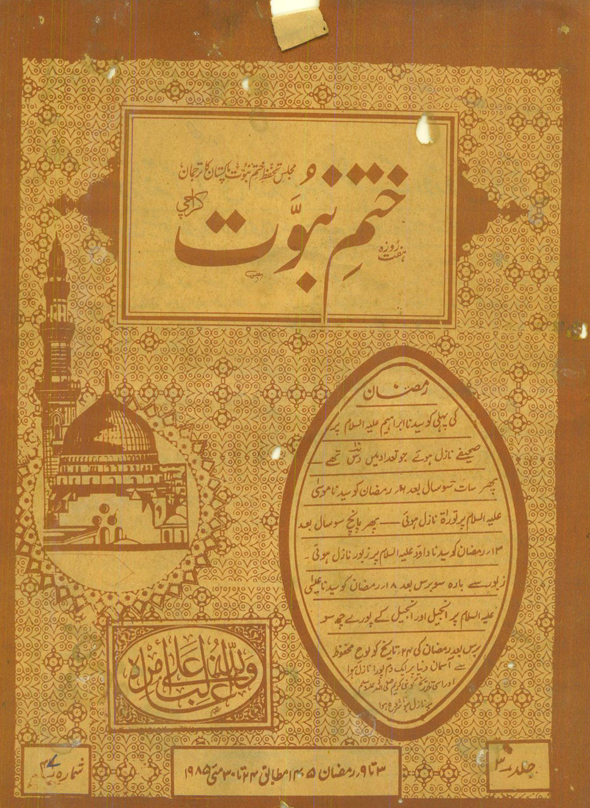 مجلس تحفظ ختم نبوت پاکستان کا ترجمان
ہفت روزہ
ختمِ نبوّت
کراچی
رمضان
کی پہلی کو سیدنا ابراہیم علیہ السلام پر
صحیفے نازل ہوئے جو تعداد میں دس تھے
پھر سات سو سال بعد ۶ر رمضان کو سیدنا موسیٰ
علیہ السلام پر توراۃ نازل ہوئی — پھر پانچ سو سال بعد
۱۳ر رمضان کو سیدنا داؤد علیہ السلام پر زبور نازل ہوئی۔
زبور سے بارہ سو برس بعد ۱۸ر رمضان کو سیدنا عیسٰی
علیہ السلام پر انجیل اور انجیل کے پورے چھ سو
برس بعد رمضان کی ۲۴ تاریخ کو لوح محفوظ
سے آسمان دنیا پر ایک دم پورا نازل ہوا
والله غالب على امره
جلد ۳
۳ تا ۹ ر رمضان ۱۴۰۵ مطابق ۲۴ تا ۳۰ مئی ۱۹۸۵
شمارہ